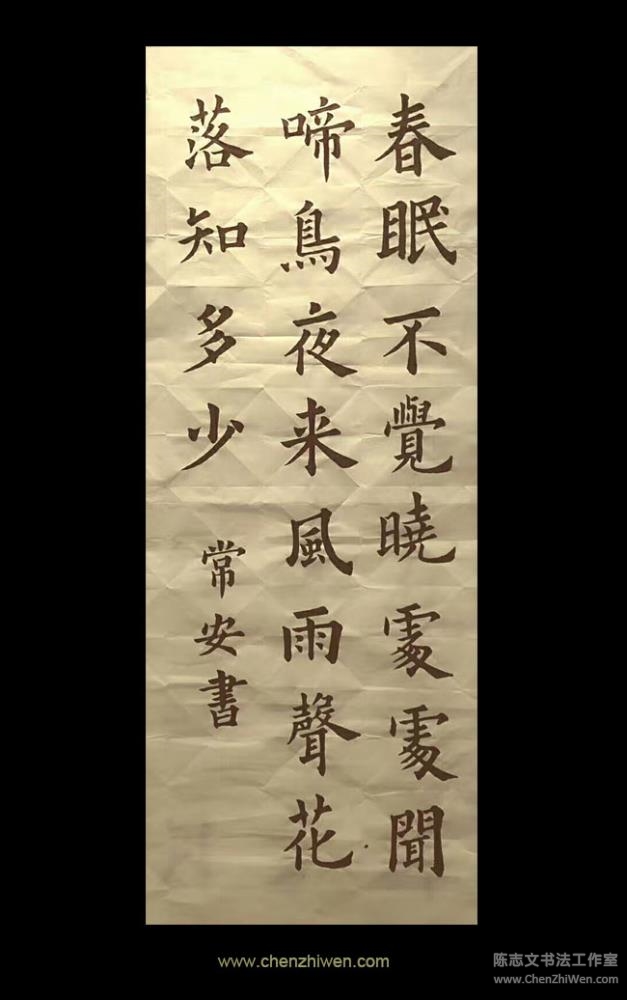 春眠不覺曉處處聞
啼鳥夜来風雨聲花
落知多少
常安書
www.chenzhiwen.com
陈志文书法工作室
www.ChenZhiWen.com